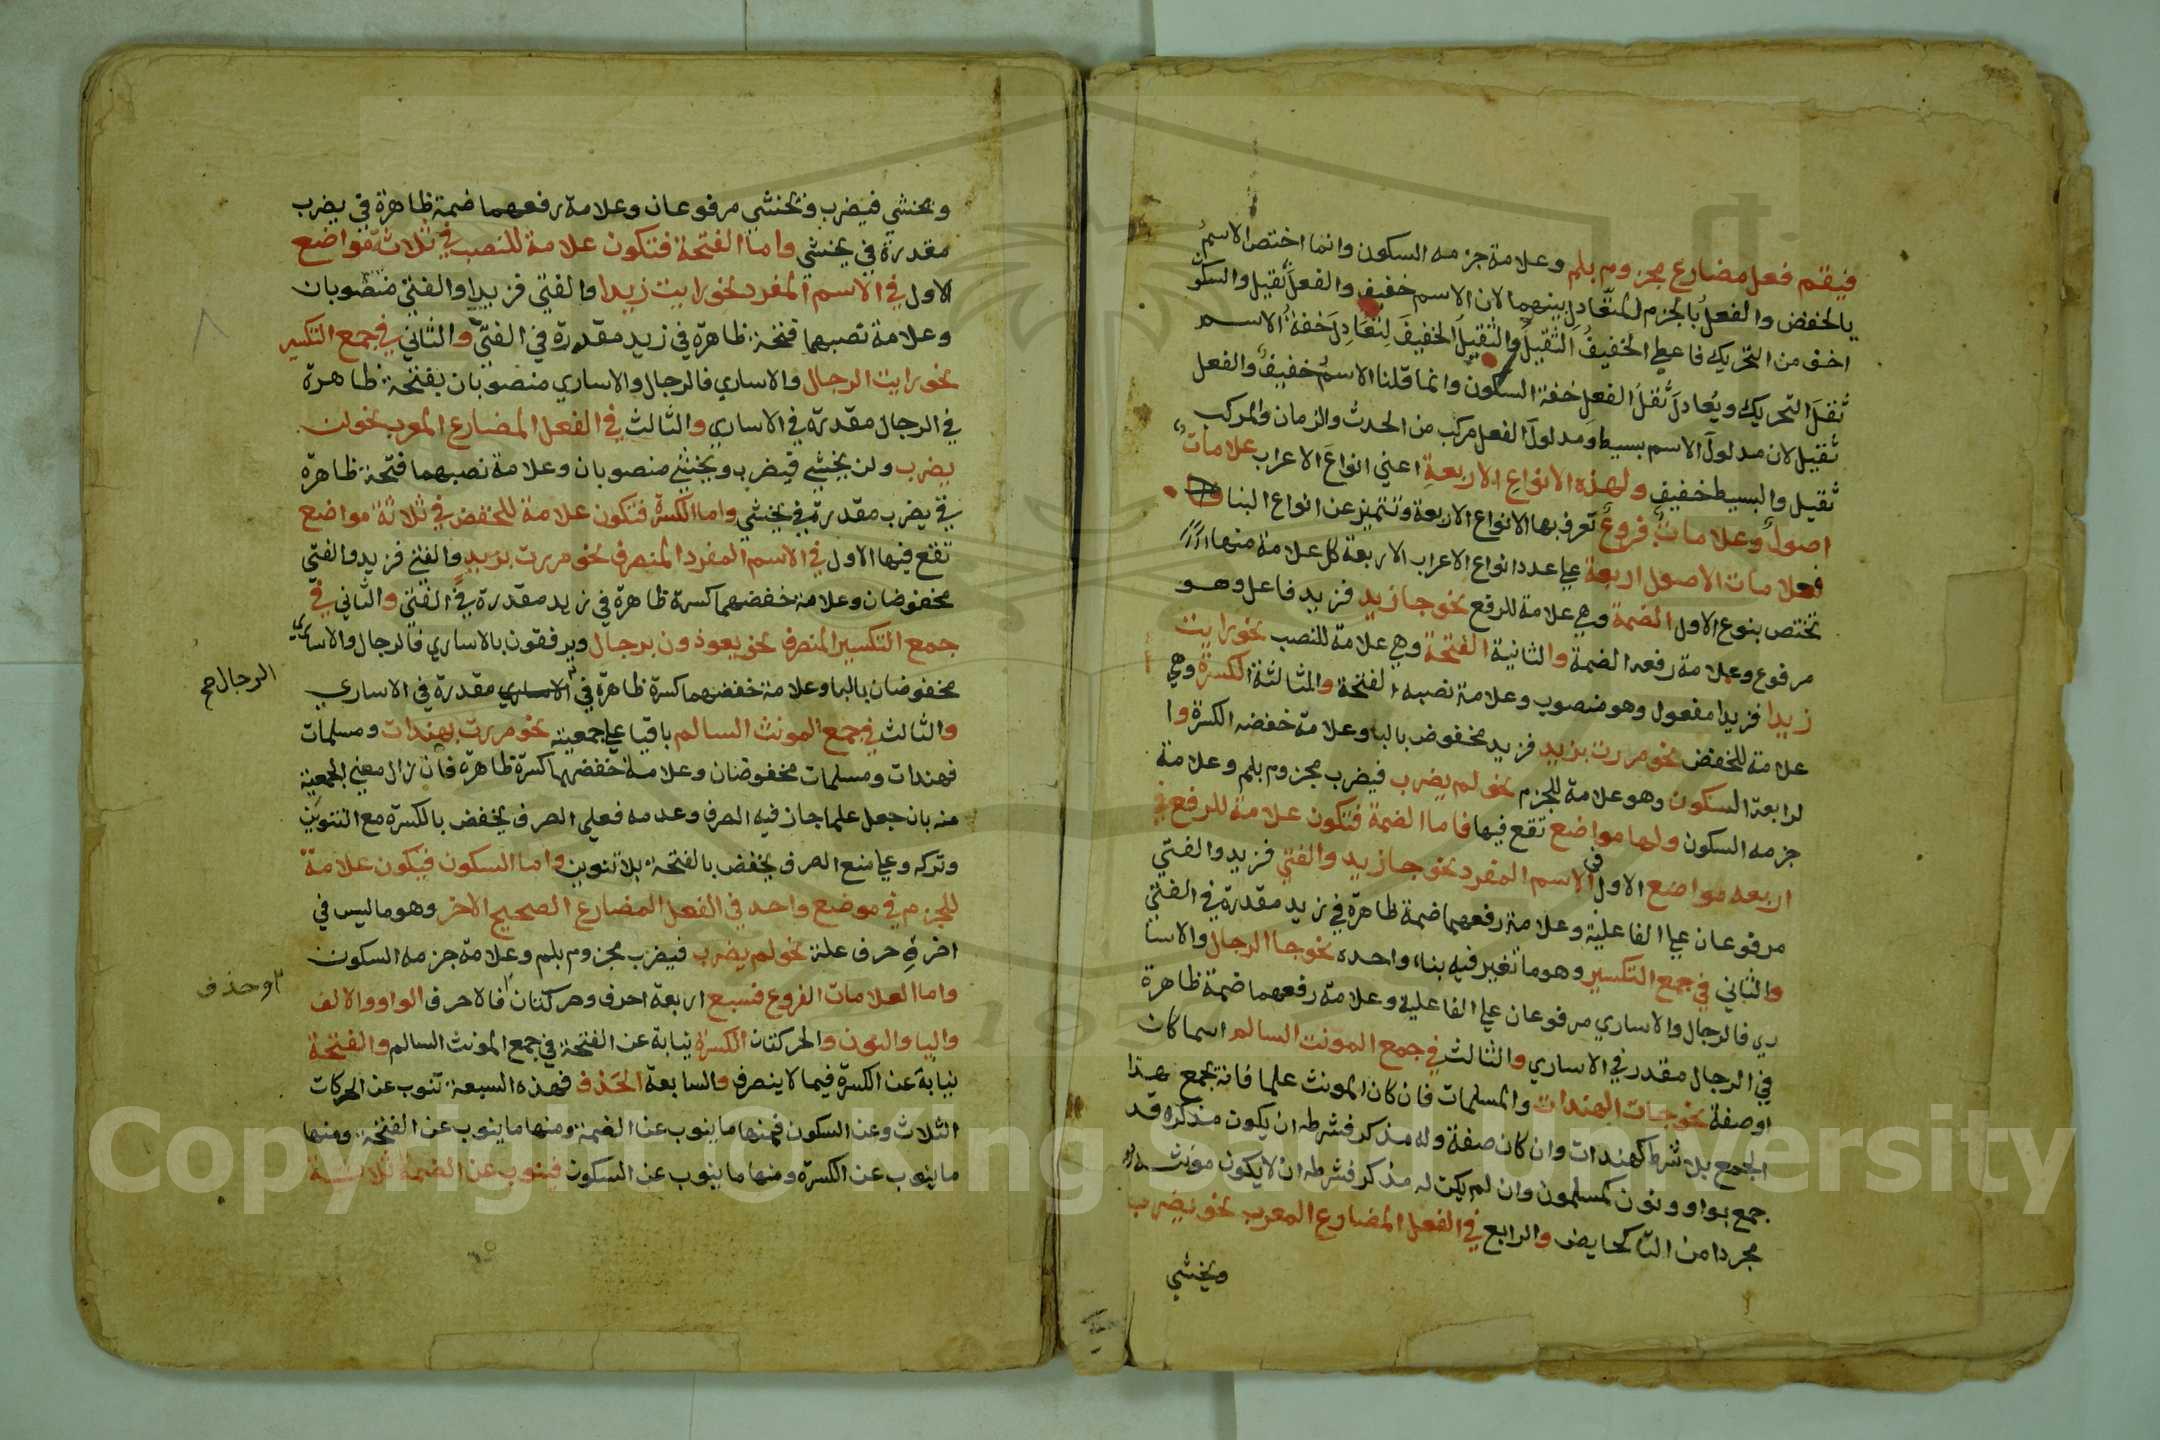 فيقم فعل مضارع مجزوم بلم وعلامة جزمه السكون وانما اختص الاسم
بالخفض والفعل بالجزم لتتعادل بينهما لان الاسم خفيف والفعل ثقيل والسكو
اخف من التحريك فاعطي الخفيف الثقيل والثقيل الخفيف لتعادل خفة الاسم
ثقل التحريك ويعادل ثقل الفعل خفة السكون وانما قلنا الاسم خفيف والفعل
ثقيل لان مدلول الاسم بسيط ومدلول الفعل مركب من الحدث والزمان والمركب
ثقيل والبسيط خفيف ولهذه الانواع الاربعة اعني انواع الاعراب علامات
اصول وعلامات فروع تعرف بها الانواع الاربعة وتتميز عن انواع البنا
فعلامات الاصول اربعة علي عدد انواع الاعراب الاربعة كل علامة منها
تختص بنوع الاول الضمة وهي علامة للرفع نحو جا زيد فزيد فاعل وهو
مرفوع وعلامة رفعه الضمة والثانية الفتحة وهي علامة للنصب نحو رايت
زيدا فزيدا مفعول وهو منصوب وعلامة نصبه الفتحة والثالثة الكسرة وهي
علامة للخفض نحو مررت بزيد فزيد مخفوض بالبا وعلامة خفضه الكسرة وا
لرابعة السكون وهو علامة للجزم نحو لم يضرب فيضرب مجزوم بلم وعلامة
جزمه السكون ولها مواضع تقع فيها فاما الضمة فتكون علامة للرفع في
اربعه مواضع الاول في الاسم المفرد نحو جا زيد والفتي فزيد والفتي
مرفوعان علي الفاعلية وعلامة رفعهما ضمة ظاهرة في زيد مقدرة في الفتي
والثاني في جمع التكسير وهو ما تغير فيه بناء واحده نحو جا الرجال والاسا
ري فالرجال والاساري مرفوعان علي الفاعلية وعلامة رفعهما ضمة ظاهرة
في الرجال مقدر في الاساري والثالث في جمع المونث السالم اسما كان
او صفة نحو جات الهندات والمسلمات فان كان المونث علما فانه يجمع هذا
الجمع بلا شرط كهندات وان كان صفة وله مذكر فشرطه ان يكون مذكره قد
جمع بواو ونون كمسلمون وان لم يكن له مذكر فشرطه ان لا يكون مونثه
مجردا من التا كحايض والرابع في الفعل المضارع المعرب نحو يضرب
ويخشي
ويخشي فيضرب ويخشي مرفوعان وعلامة رفعهما ضمة ظاهرة في يضرب
مقدرة في يخشي واما الفتحة فتكون علامة للنصب في ثلاثة مواضع
الاول في الاسم المفرد نحو رايت زيدا والفتي فزيدا والفتي منصوبان
وعلامة نصبهما فتحة ظاهرة في زيد مقدرة في الفتي والثاني في جمع التكسير
نحو رايت الرجال والاساري فالرجال والاساري منصوبان بفتحة ظاهرة
في الرجال مقدرة في الاساري والثالث في الفعل المضارع المعرب نحو لن
يضرب ولن يخشي فيضرب ويخشي منصوبان وعلامة نصبهما فتحة ظاهرة
في يضرب مقدرة في يخشي واما الكسرة فتكون علامة للخفض في ثلاثة مواضع
تقع فيها الاول في الاسم المفرد المنصرف نحو مررت بزيد والفتي فزيد والفتي
مخفوضان وعلامة خفضهما كسرة ظاهرة في زيد مقدرة في الفتي والثاني في
جمع التكسير المنصرف نحو يعوذون برجال ويرفقون بالاساري فالرجال والاساري
مخفوضان بالبا وعلامة خفضهما كسرة ظاهرة في الاساري مقدرة في الاساري
الرجال صح
والثالث في جمع المونث السالم باقيا علي جمعيته نحو مررت بهندات ومسلمات
فهندات ومسلمات مخفوضان وعلامة خفضهما كسرة ظاهرة فان زال معني الجمعية
منه بان جعل علما جاز فيه الصرف وعدمه فعلي الصرف يخفض بالكسرة مع التنوين
وتركه وعلي منع الصرف يخفض بالفتحة بلا تنوين واما السكون فيكون علامة
للجزم في موضع واحد في الفعل المضارع الصحيح الاخر وهو ما ليس في
اخره حرف علة نحو لم يضرب فيضرب مجزوم بلم وعلامة جزمه السكون
واما العلامات الفروع فسبع اربعة احرف وحركتان فالاحرف الواو والالف
او حذف
واليا والنون والحركتان الكسرة نيابة عن الفتحة في جمع المونث السالم والفتحة
نيابة عن الكسرة فيما لا ينصرف والسابعة الحذف فهذه السبعة تنوب عن الحركات
الثلاث وعن السكون فمنها ما ينوب عن الضمة ومنها ما ينوب عن الفتحة ومنها
ما ينوب عن الكسرة ومنها ما ينوب عن السكون فينوب عن الضمة ثلاثة
Copyright © King Saud University